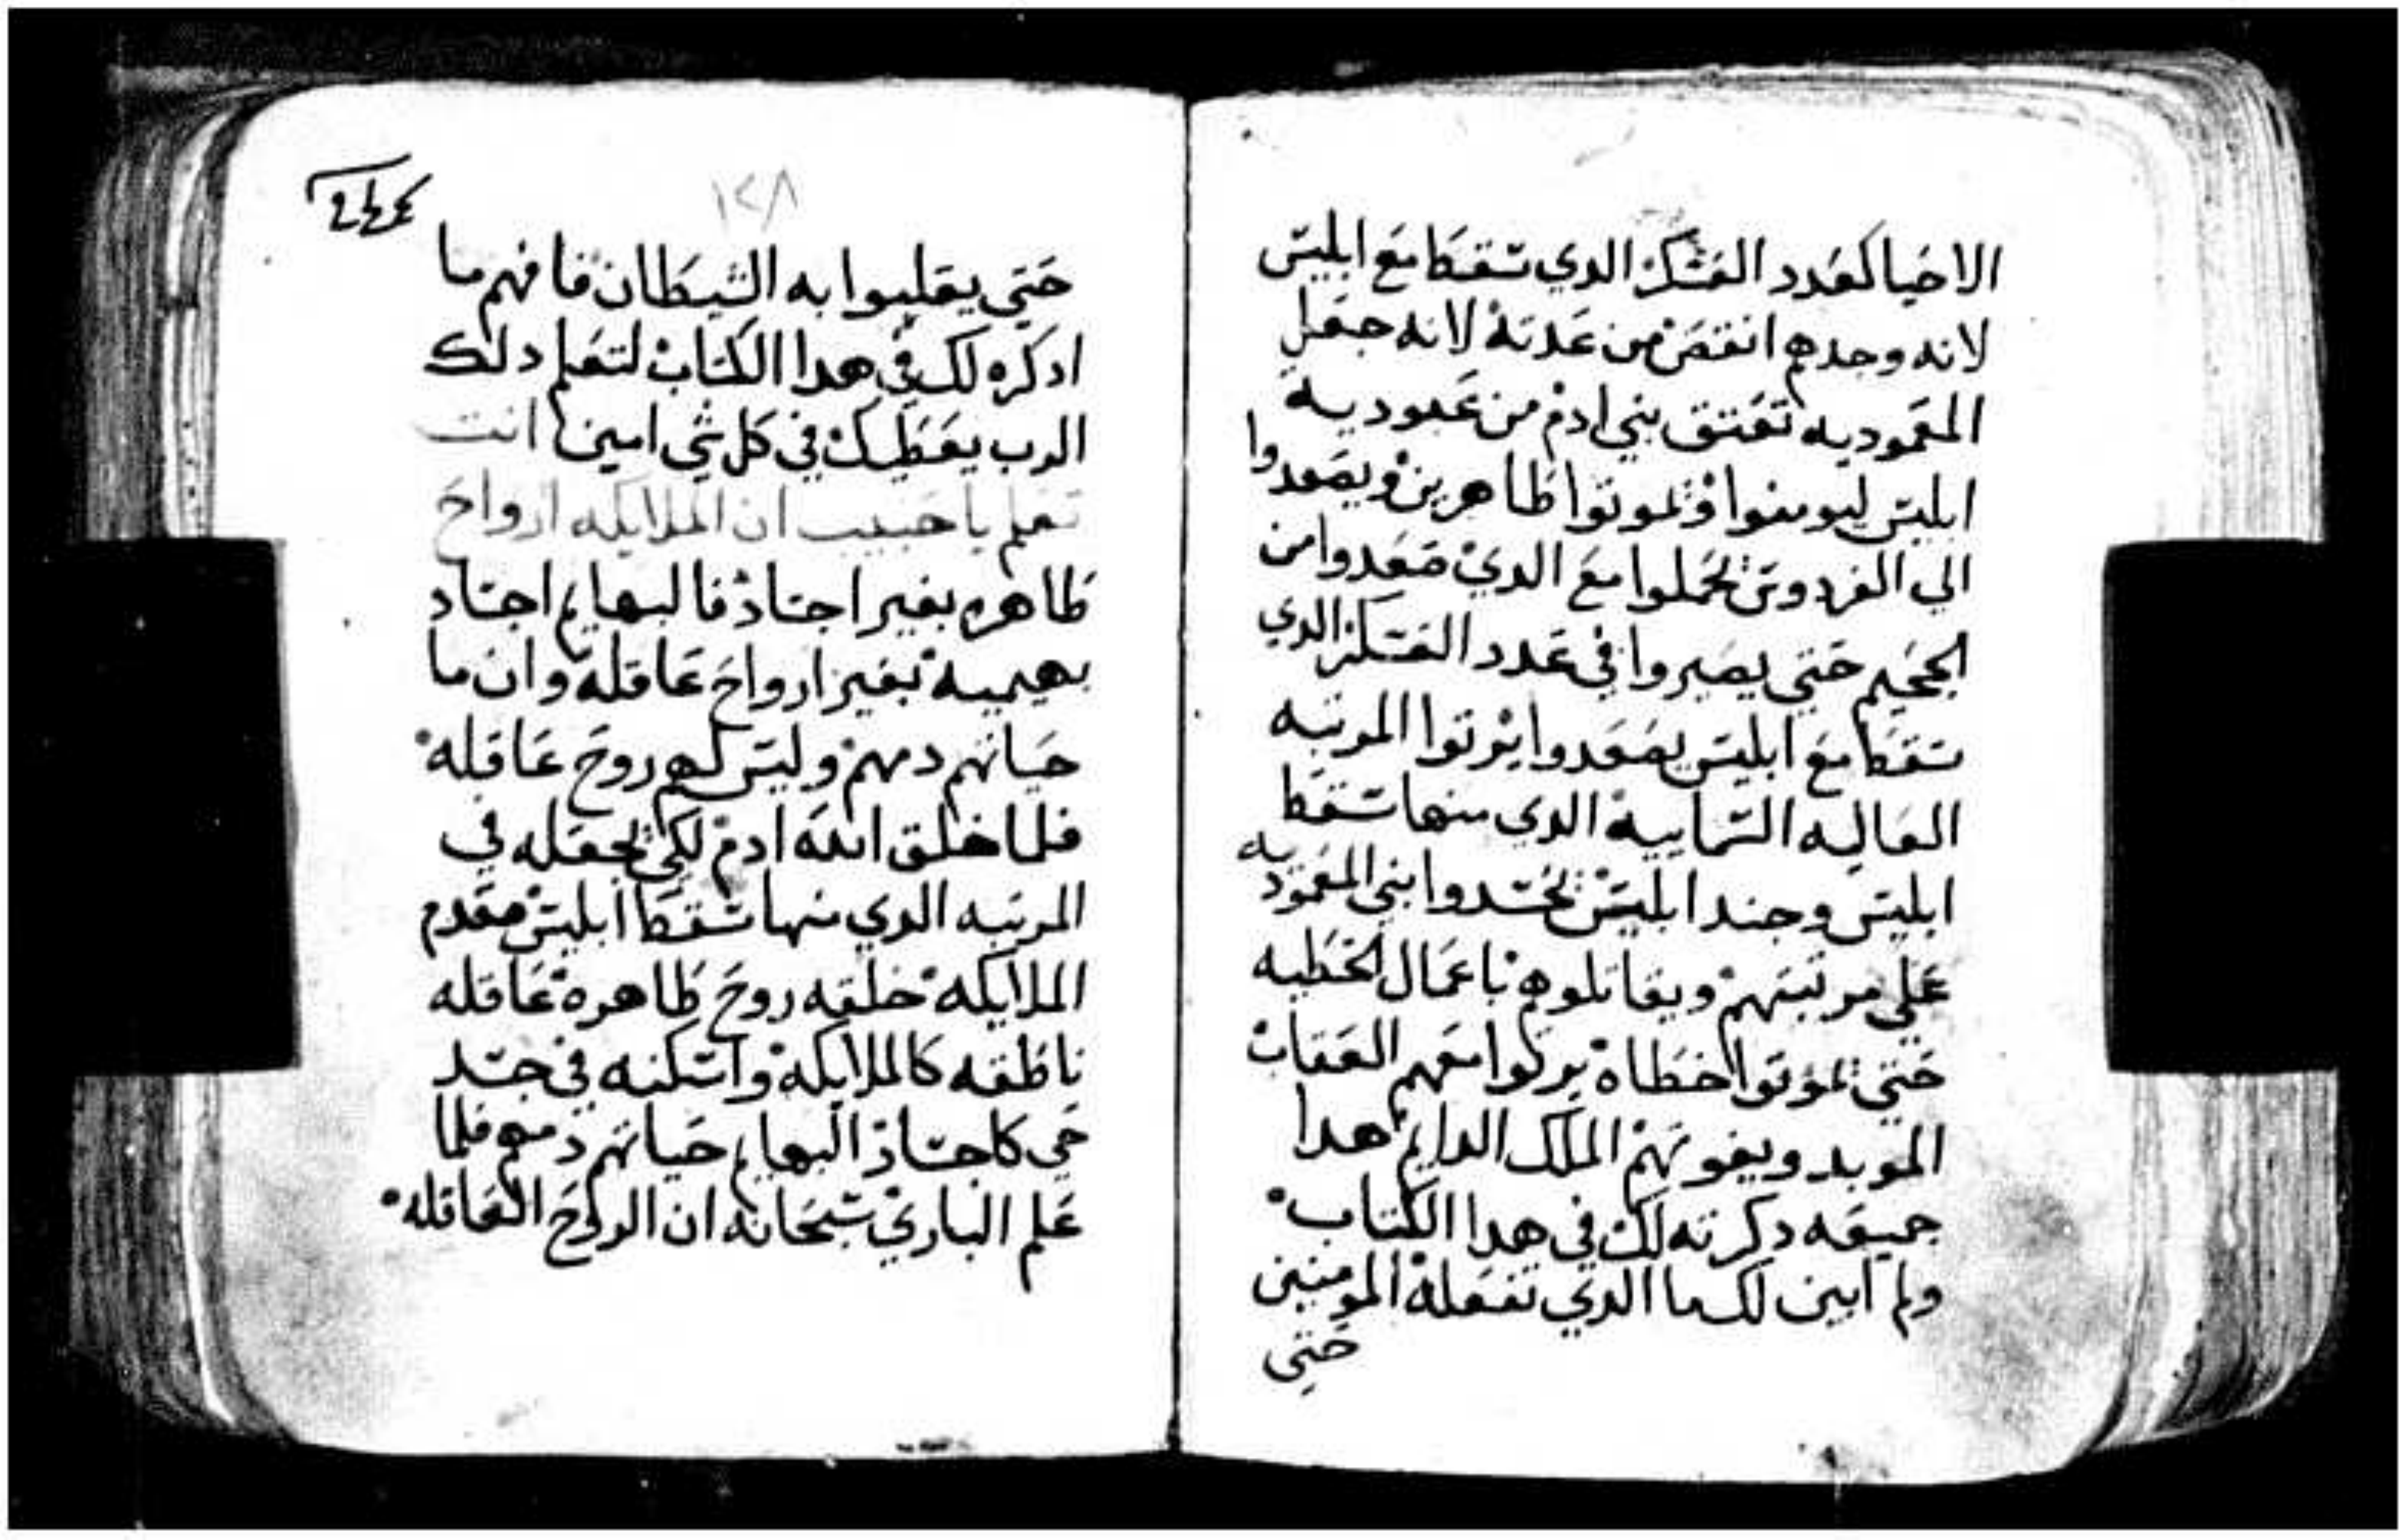 الاحيا كعدد العسكر الدي سقط مع ابليس
لانه وجدهم انقص من عدته لانه جعل
المعموديه تعتق بني ادم من عبوديه
ابليس ليومنوا ويموتوا طاهرين ويصعدوا
الي الفردوس يحملوا مع الدي صعدوا من
الجحيم حتي يصيروا في عدد العسكر الدي
سقط مع ابليس يصعدوا يرتوا المرتبه
العاليه السماييه الدي منها سقط
ابليس وجند ابليس يحسدوا بني المعموديه
علي مرتبتهم ويقاتلوهم باعمال الخطيه
حتي يموتوا خطاه يركوا معهم العقاب
الموبد ويفوتهم الملك الدايم هدا
جميعه دكرته لك في هدا الكتاب
ولم ابين لك ما الدي تفعله المومنين
حتي
١٢٨
حتي يغلبوا به الشيطان فافهم ما
ادكره لك في هدا الكتاب لتعلم دلك
الرب يعطيك في كل شي امين انت
تعلم يا حبيب ان الملايكه ارواح
طاهره بغير اجساد فالبهايم اجساد
بهيميه بغير ارواح عاقله وان ما
حياتهم دمهم وليس لهم روح عاقله
فلما خلق الله ادم لكي يجعله في
المرتبه الدي منها سقط ابليس مقدم
الملايكه خلقه روح طاهره عاقله
ناطقه كالملايكه واسكنه في جسد
حي كاجساد البهايم حياتهم دمهم فلما
علم الباري سبحانه ان الروح العاقله